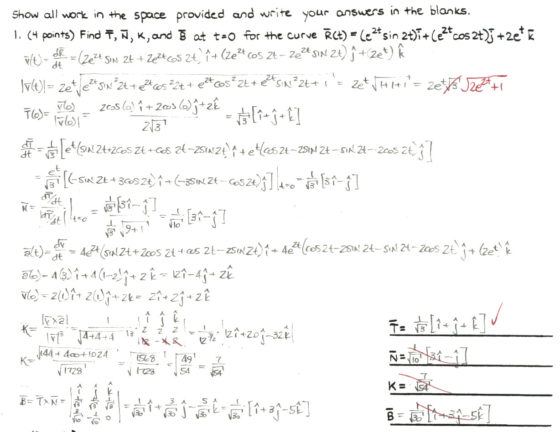 Show all work in the space provided and write your answers in the blanks.
1. (4 points) Find T̄, N̄, K, and B̄ at t=0 for the curve R̄(t) = (e^{2t} sin 2t)ī + (e^{2t} cos 2t)j̄ + 2e^t k̄
v̄(t) = dR̄/dt = (2e^{2t} sin 2t + 2e^{2t} cos 2t) î + (2e^{2t} cos 2t - 2e^{2t} sin 2t) ĵ + (2e^t) k̂
|v̄(t)| = 2e^t √(e^{2t} sin² 2t + e^{2t} cos² 2t + e^{2t} cos² 2t + e^{2t} sin² 2t + 1) = 2e^t √(1+1+1) = 2e^t √3 √(2e^{2t}+1)
T̄(0) = v̄(0)/|v̄(0)| = (2cos(0) î + 2cos(0) ĵ + 2k̂)/(2√3) = 1/√3 [î + ĵ + k̂]
dT̄/dt = 1/√3 [e^t (sin 2t + 2cos 2t + cos 2t - 2sin 2t) î + e^t (cos 2t - 2sin 2t - sin 2t - 2cos 2t) ĵ]
= e^t/√3 [(-sin 2t + 3cos 2t) î + (-3sin 2t - cos 2t) ĵ] |t=0 = 1/√3 [3î - ĵ]
N̄ = (dT̄/dt)/|dT̄/dt| |t=0 = (1/√3 [3î - ĵ])/(1/√3 √(9+1)) = 1/√10 [3î - ĵ]
ā(t) = dv̄/dt = 4e^{2t} (sin 2t + 2cos 2t + cos 2t - 2sin 2t) î + 4e^{2t} (cos 2t - 2sin 2t - sin 2t - 2cos 2t) ĵ + (2e^t) k̂
ā(0) = 4(3) î + 4(1-2) ĵ + 2k̂ = 12î - 4ĵ + 2k̂
v̄(0) = 2(1) î + 2(1) ĵ + 2k̂ = 2î + 2ĵ + 2k̂
K = |v̄ × ā|/|v̄|³ = 1/√(4+4+4)³ |î ĵ k̂ 2 2 2 12 -4 2| = 1/12^{3/2} |12î + 20ĵ - 32k̂|
K = √(144 + 400 + 1024)/√1728 = √(1568/1728) = √(49/54) = 7/√54
B̄ = T̄ × N̄ = |î ĵ k̂ 1/√3 1/√3 1/√3 3/√10 -1/√10 0| = 1/√30 î + 3/√30 ĵ - 5/√30 k̂ = 1/√30 [î + 3ĵ - 5k̂]
T̄ = 1/√3 [î + ĵ + k̂] ✓
N̄ = 1/√10 [3î - ĵ]
K = 7/√54
B̄ = 1/√30 [î + 3ĵ - 5k̂]